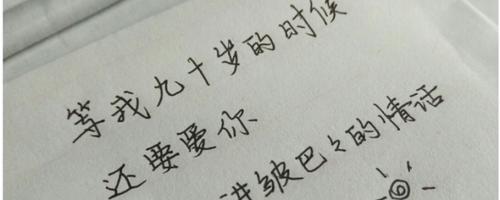 等我九十岁的时候
还要爱你
讲皱巴々的情话